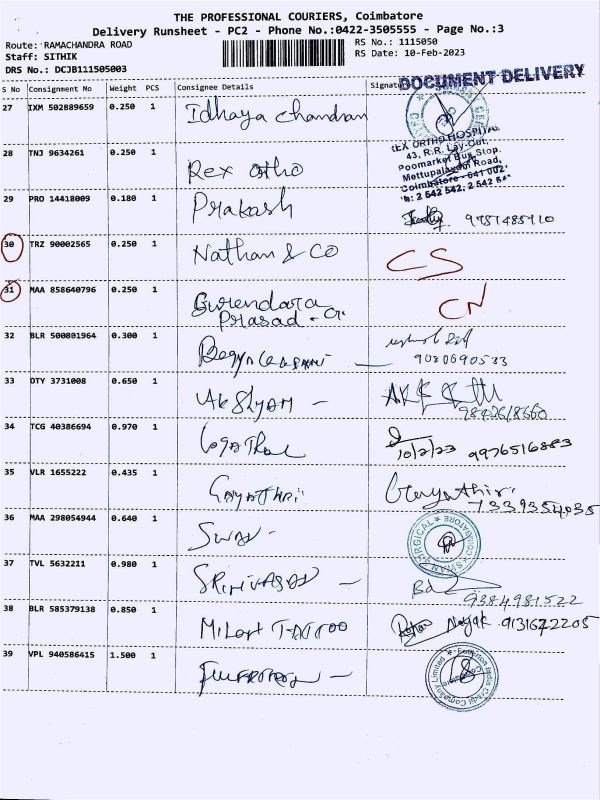 THE PROFESSIONAL COURIERS, Coimbatore
Delivery Runsheet - PC2 - Phone No.:0422-3505555 - Page No.:3
Route: RAMACHANDRA ROAD RS No.: 1115050
Staff: SITHIK RS Date: 10-Feb-2023
DRS No.: DCJB111505003
DOCUMENT DELIVERY
S No Consignment No Weight PCS Consignee Details
27 IXM 502889659 0.250 1 Idhaya chandran
ORTHO HOSPITAL
43, R.R. Lay-Out,
Poomarket Bus Stop.
Mettupalayam Road,
Coimbatore - 641 002
28 TNJ 9634261 0.250 1 Rex ortho
29 PRO 14418009 0.180 1 Prakash
30 TRZ 90002565 0.250 1 Nathan & CO CS
31 MAA 858640796 0.250 1 Gurendara Prasad - G. CN
32 BLR 500801964 0.300 1
33 OTY 3731008 0.650 1 AKSHYAM -
34 TCG 40386694 0.970 1 10/2/23 9976516883
35 VLR 1655222 0.435 1 GAYATHRI Gayathiri
7339354035
36 MAA 298054944 0.640 1 SWAN - SWAN SURGICAL COIMBATORE
37 TVL 5632211 0.980 1 SRINIVASAN -
9384981522
38 BLR 585379138 0.850 1 MILART TATTOO Nayak 9131672205
39 VPL 940586415 1.500 1 Fullerton India Credit Company Limited